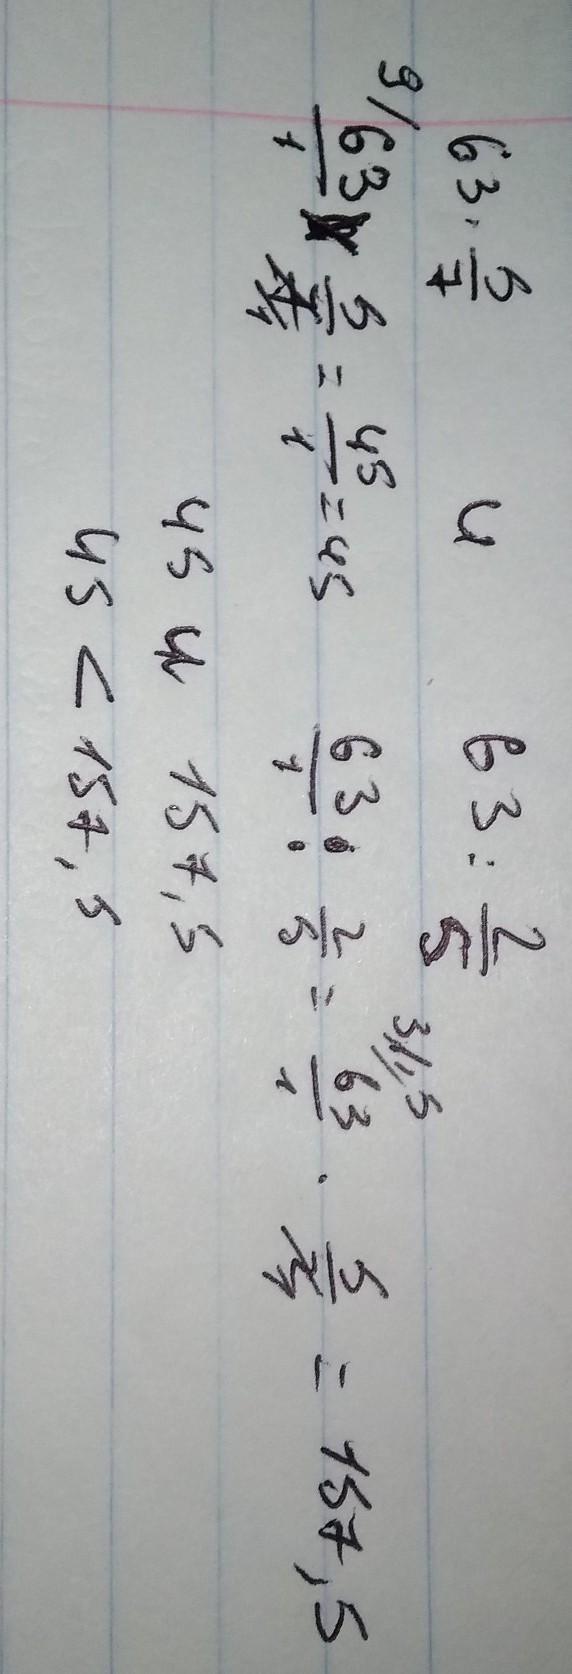 63 · 5/7 и 63 : 2/5
9/ 63/1 · 5/7 1 = 45/1 = 45 63/1 : 2/5 = 31,5 63/1 · 5/2 1 = 157,5
45 и 157,5
45 < 157,5